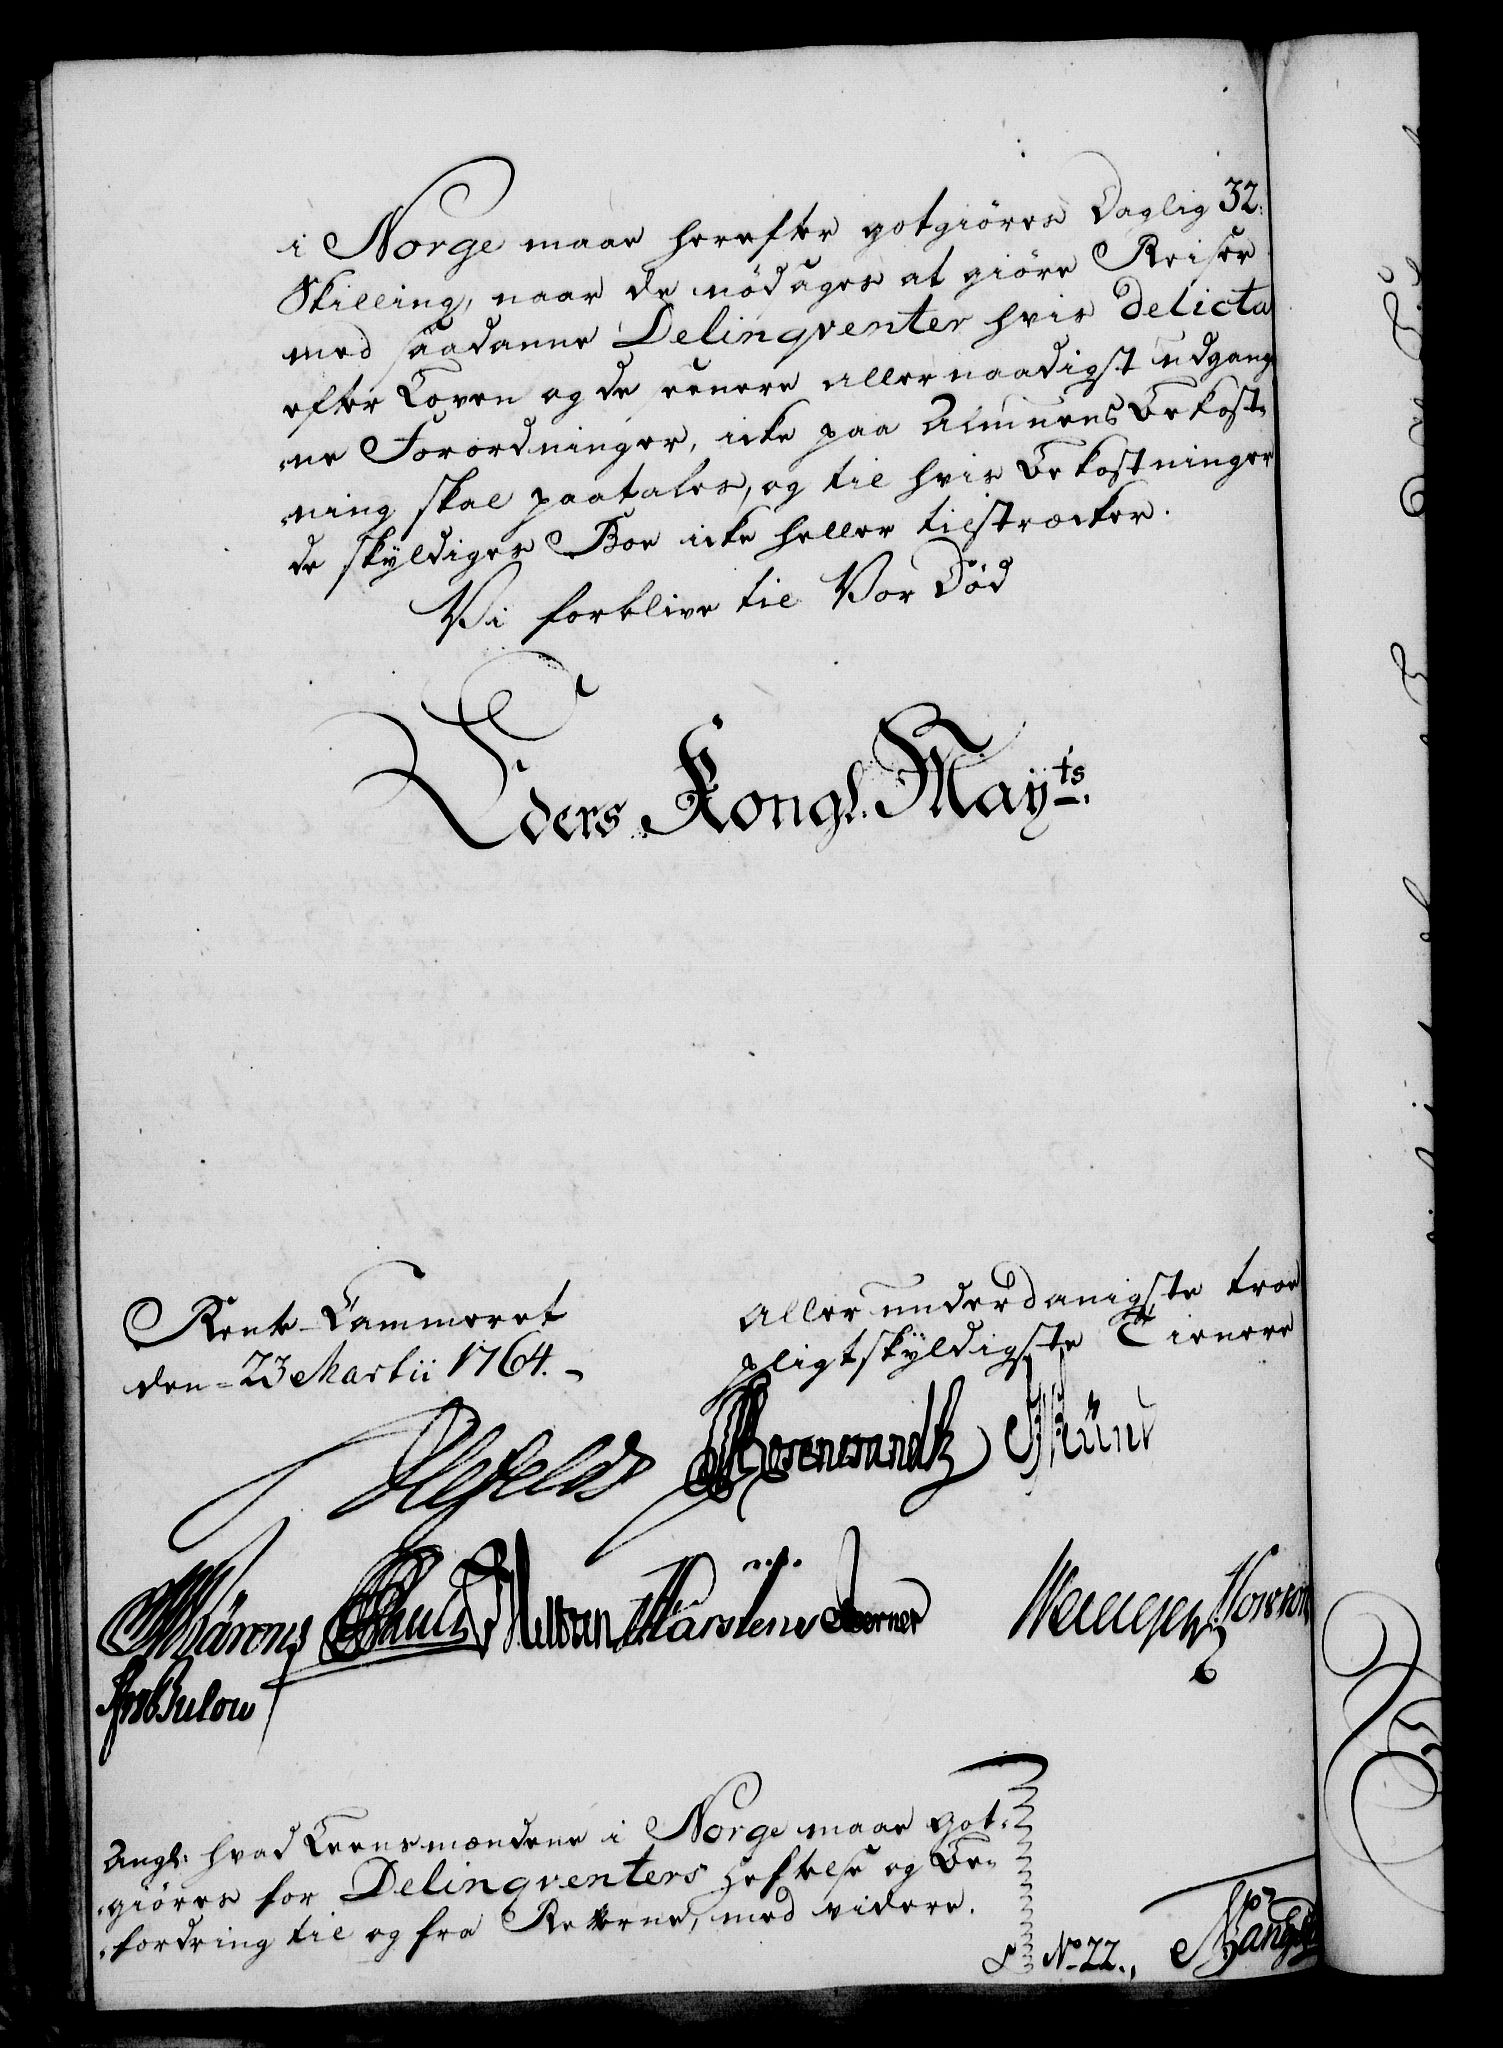 i Norge maae herefter gotgiøres Daglig 32:
Skilling, naar de nödages at giöre Reiser
med saadanne Delinqventer hvis Delicta
efter Loven og de senere allernaadigst udgang
ne Forordninger, icke paa Almuens Bekost-
ning skal paatales, og til hvis Bekostninger
de skÿldiges Boe icke heller tilstrecker.
Vi forblive til Vor Död
Eders Kongl. Mayts.
Rente-Cammeret
den 23 Martii 1764.
Allerunderdanigste troe
pligtskÿldigste Tienere
Wärens Schultz Karstens Berner
Bulow
Angl: hvad Leensmændene i Norge maae got-
giöres for Delinqventers Heftelse og Be-
fordring til og fra Retterne, med videre.
No 22.,